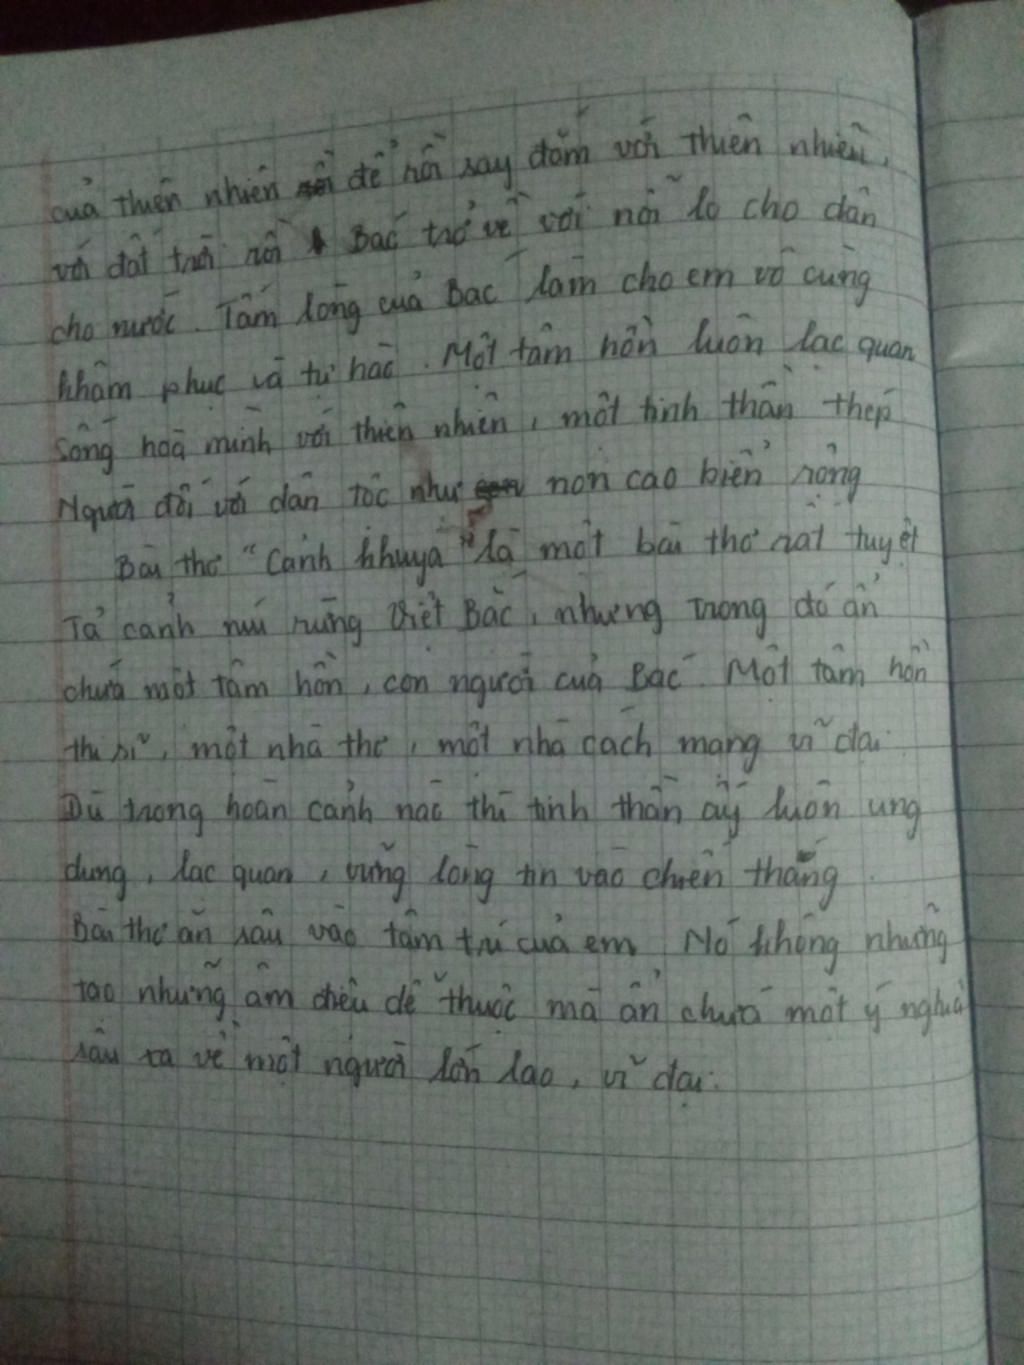 của thiên nhiên để rồi say đắm với thiên nhiên,
với đất trời rồi Bác trở về với nỗi lo cho dân
cho nước. Tấm lòng của Bác làm cho em vô cùng
khâm phục và tự hào. Một tâm hồn luôn lạc quan
sống hoà mình với thiên nhiên, một tinh thần thép
Người đối với dân tộc như non cao biển rộng
Bài thơ "Cảnh khuya" là một bài thơ rất tuyệt
Tả cảnh núi rừng Việt Bắc, nhưng trong đó ẩn
chứa một tâm hồn, con người của Bác. Một tâm hồn
thi sĩ, một nhà thơ, một nhà cách mạng vĩ đại.
Dù trong hoàn cảnh nào thì tinh thần ấy luôn ung
dung, lạc quan, vững lòng tin vào chiến thắng.
Bài thơ ăn sâu vào tâm trí của em. Nó không những
tạo những âm điệu dễ thuộc mà ẩn chứa một ý nghĩa
sâu xa về một người lớn lao, vĩ đại.